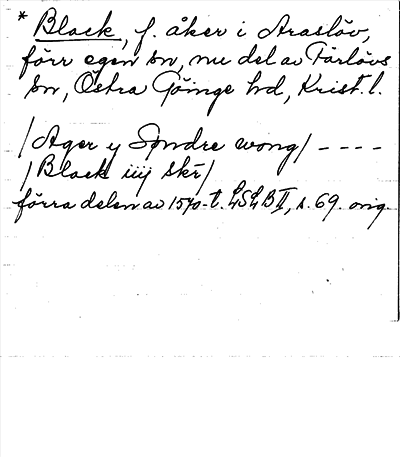 * Black, f. åker i Araslöv,
förr egen sn, nu del av Färlövs
sn, Östra Göinge hd, Krist. l.
/Ager y Søndre wong/ - - - -
/Black iiij skr/
förra delen av 1570-t. LSLB II, s. 69. orig.